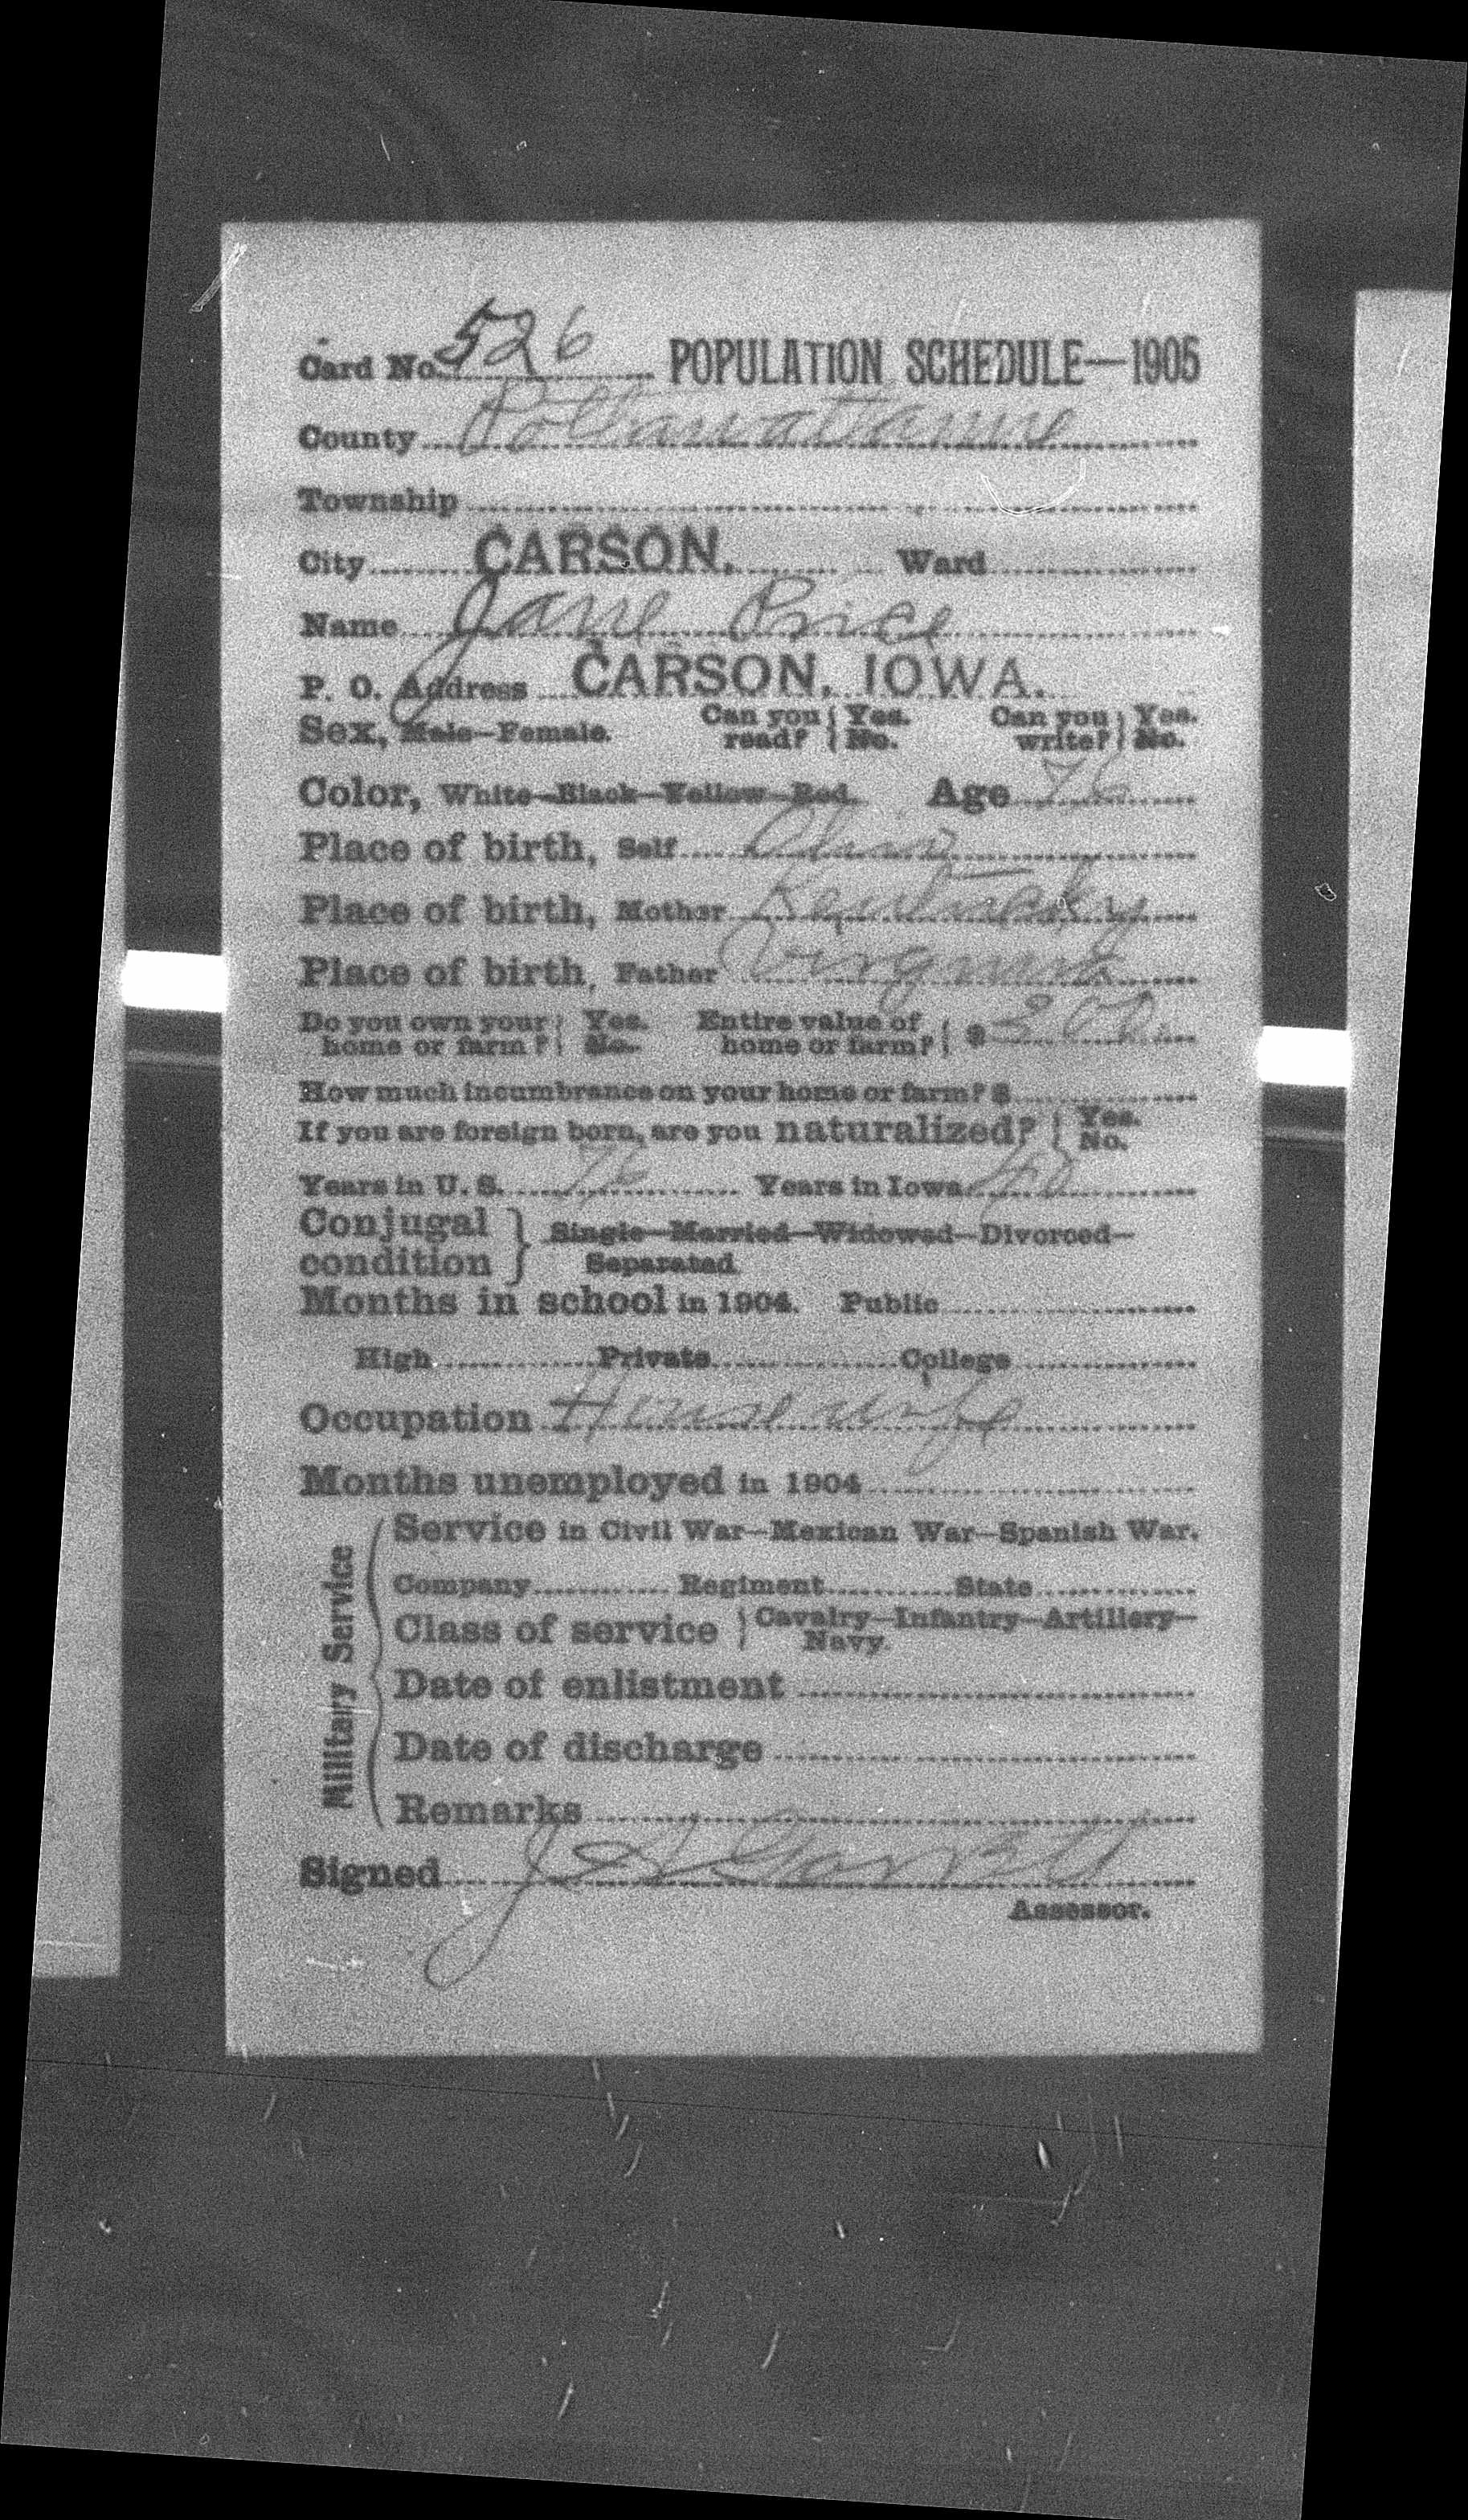 Card No. 526 POPULATION SCHEDULE—1905
County Pottawattamie
Township
City CARSON, Ward
Name Jane Price
P. O. Address CARSON, IOWA.
Sex, Male—Female. Can you read? { Yes. No. Can you write? { Yes. No.
Color, White—Black—Yellow—Red. Age 76
Place of birth, Self Ohio
Place of birth, Mother Kentucky
Place of birth, Father Virginia
Do you own your home or farm? { Yes. No. Entire value of home or farm? { $ 300.
How much incumbrance on your home or farm? $
If you are foreign born, are you naturalized? { Yes. No.
Years in U. S. 76 Years in Iowa 40
Conjugal condition } Single—Married—Widowed—Divorced—
Separated
Months in school in 1904. Public
High Private College
Occupation Housewife
Months unemployed in 1904
Military Service
Service in Civil War—Mexican War—Spanish War.
Company Regiment State
Class of service { Cavalry—Infantry—Artillery—
Navy.
Date of enlistment
Date of discharge
Remarks
Signed
Assessor.